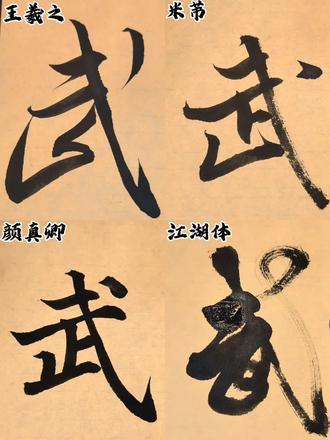 王羲之
武
米芾
武
颜真卿
武
江湖体
武